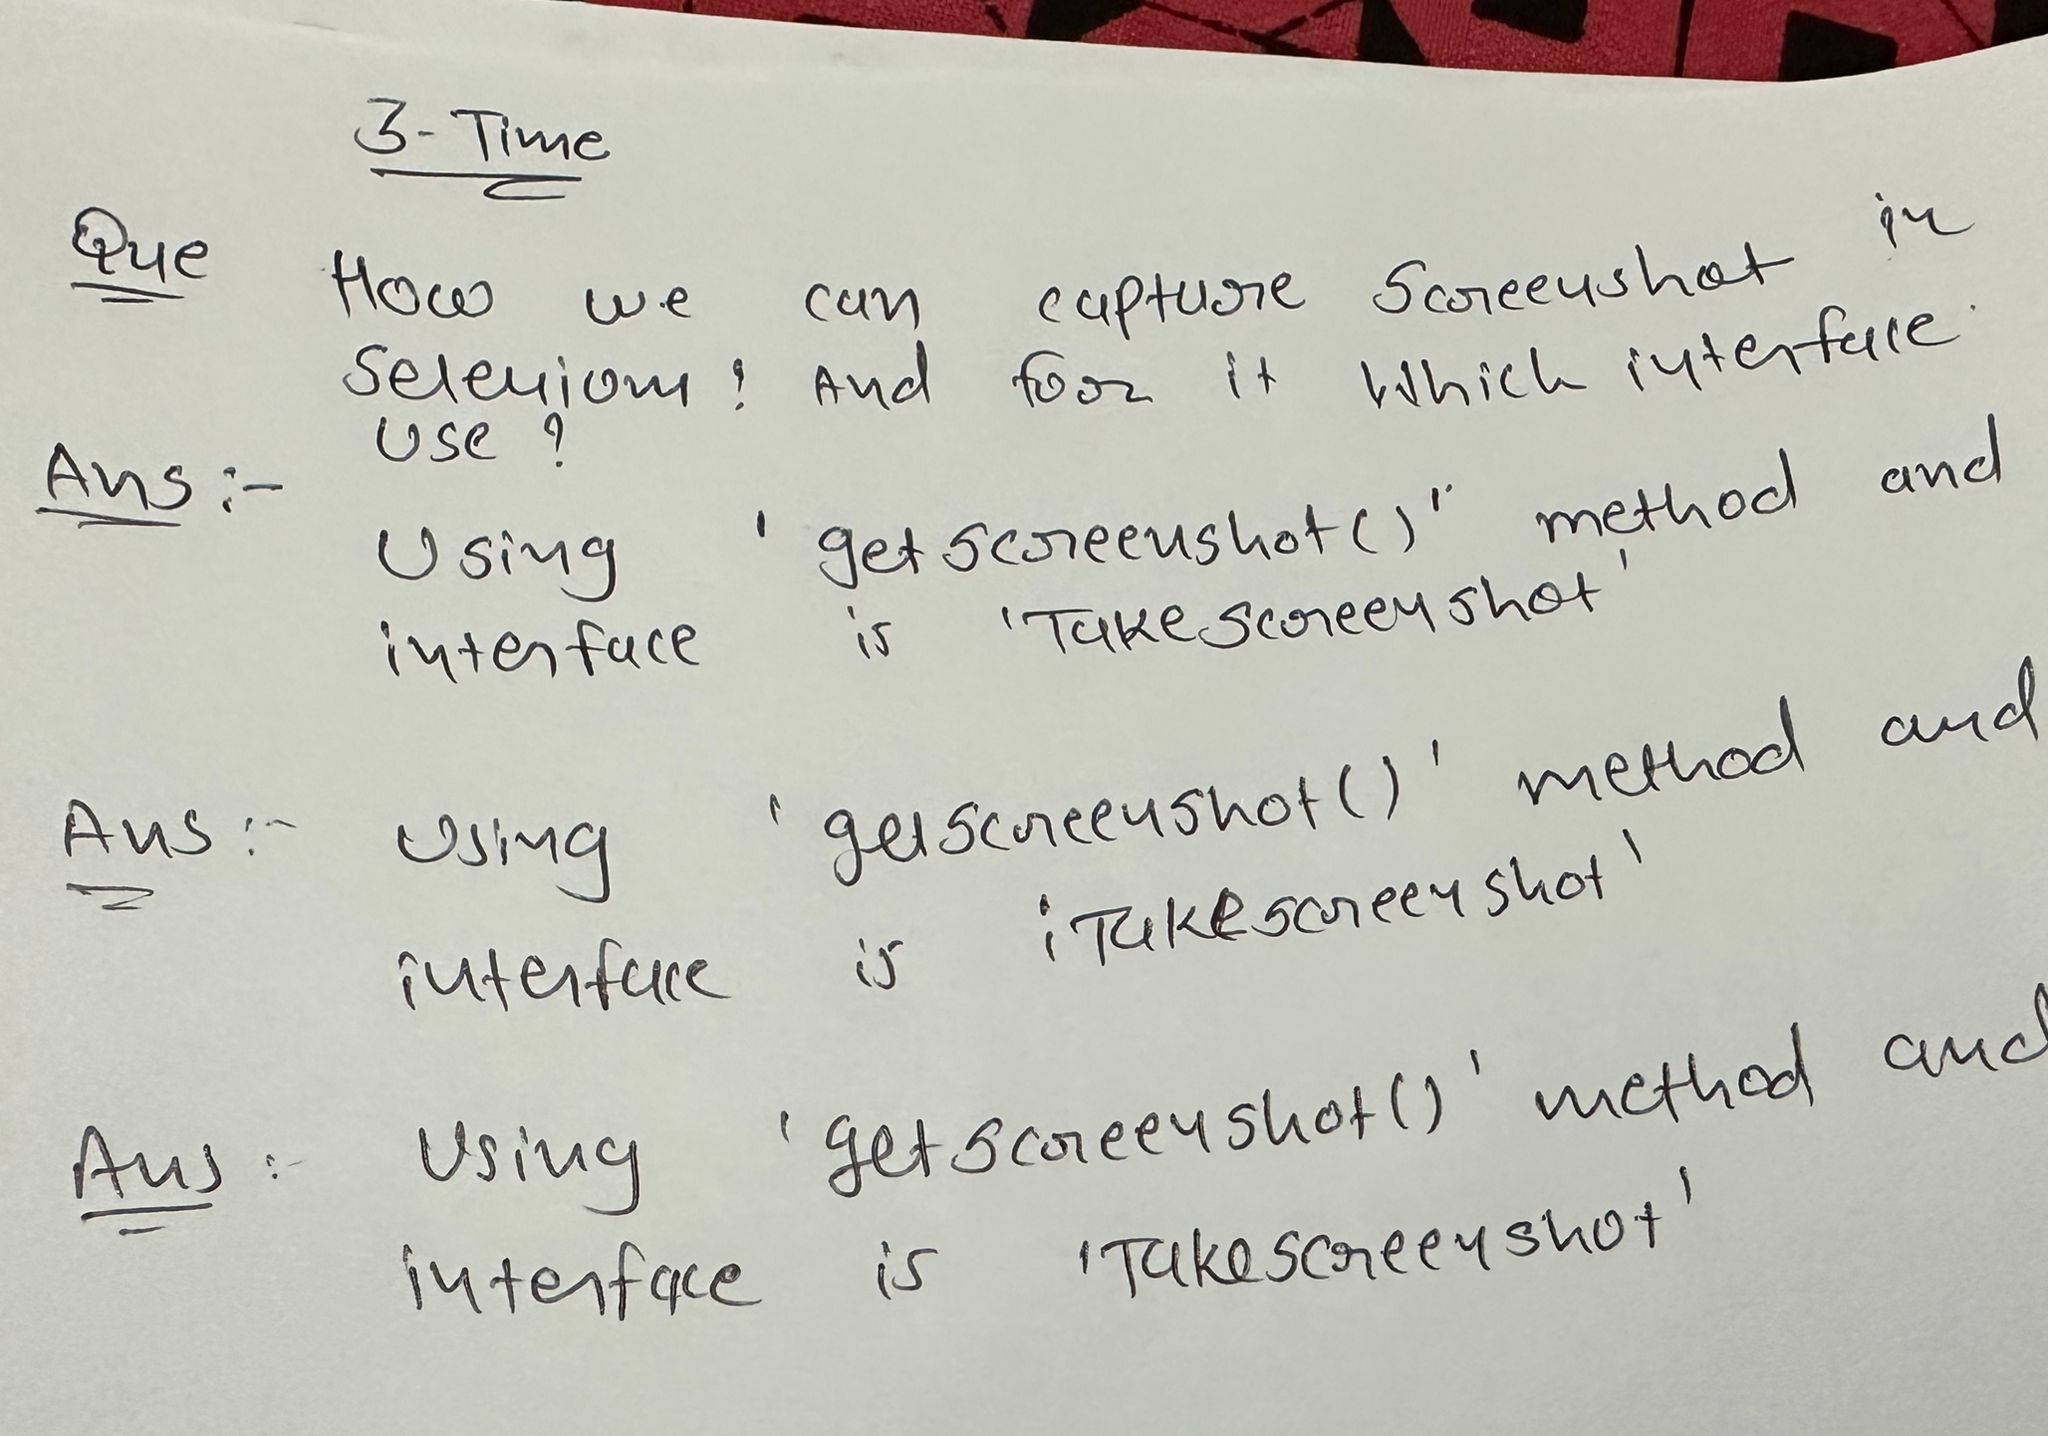 3-Time
Que How we can capture Screenshot in
Selenium? And for it Which interface
use?
Ans:-
Using 'getscreenshot()" method and
interface is 'Takescreenshot'
Ans:- Using 'getscreenshot()' method and
interface is 'Takescreenshot'
Ans:- Using 'getscreenshot()' method and
interface is 'Takescreenshot'